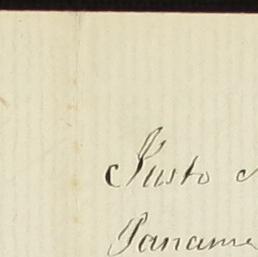 Justo
Panama